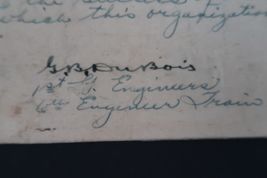 which this organization
G.B. DuBois
1st Lt. Engineers
6th Engineer Train